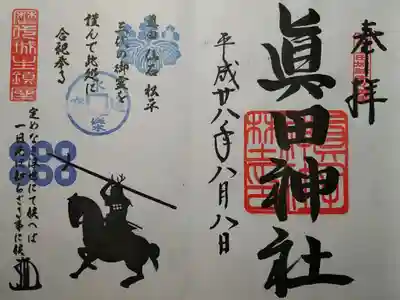 奉拝
眞田神社
平成廿八年八月八日
眞田 仙石 松平
三代の御霊を
謹んで此処に
合祀奉る
定めなき浮世にて候へば
一日先は知らざる事に候